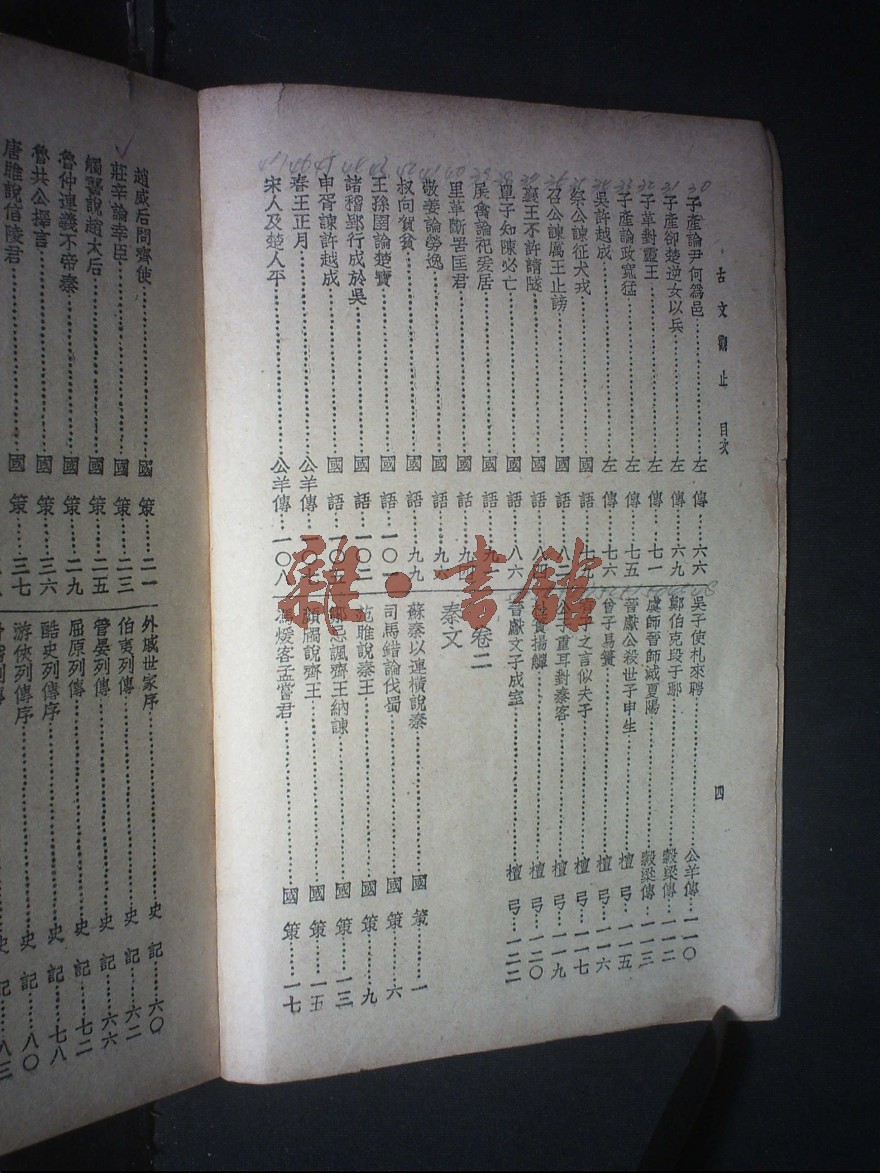 古文觀止 目次
四
子產論尹何爲邑 左傳 六六
子產卻楚逆女以兵 左傳 六九
子革對靈王 左傳 七一
子產論政寬猛 左傳 七五
吳許越成 左傳 七六
祭公諫征犬戎 國語
召公諫厲王止謗 國語 八二
襄王不許請隧 國語 八四
單子知陳必亡 國語 八六
展禽論祀爰居 國語
里革斷罟匡君 國話
敬姜論勞逸 國語
叔向賀貧 國語 九九
王孫圉論楚寶 國語
諸稽郢行成於吳 國語 一〇二
申胥諫許越成 國語
春王正月 公羊傳
宋人及楚人平 公羊傳 一〇八
吳子使札來聘 公羊傳 一一〇
鄭伯克段于鄢 穀梁傳 一一二
虞師晉師滅夏陽 穀梁傳 一一三
晉獻公殺世子申生 檀弓 一一五
曾子易簀 檀弓 一一六
子之言似夫子 檀弓 一一七
公子重耳對秦客 檀弓 一一九
杜蕢揚觶 檀弓 一二〇
晉獻文子成室 檀弓 一二二
卷二
秦文
蘇秦以連橫說秦 國策 一
司馬錯論伐蜀 國策 六
范雎說秦王 國策 九
鄒忌諷齊王納諫 國策 一三
顏斶說齊王 國策 一五
馮煖客孟嘗君 國策 一七
趙威后問齊使 國策 二一
莊辛論幸臣 國策 二三
觸讋說趙太后 國策 二五
魯仲連義不帝秦 國策 二九
魯共公擇言 國策 三六
唐雎說信陵君 國策 三七
外戚世家序 史記 六〇
伯夷列傳 史記 六二
管晏列傳 史記 六六
屈原列傳 史記 七二
酷吏列傳序 史記 七八
游俠列傳序 史記 八〇
滑稽列傳 史記 八三
雜·書館